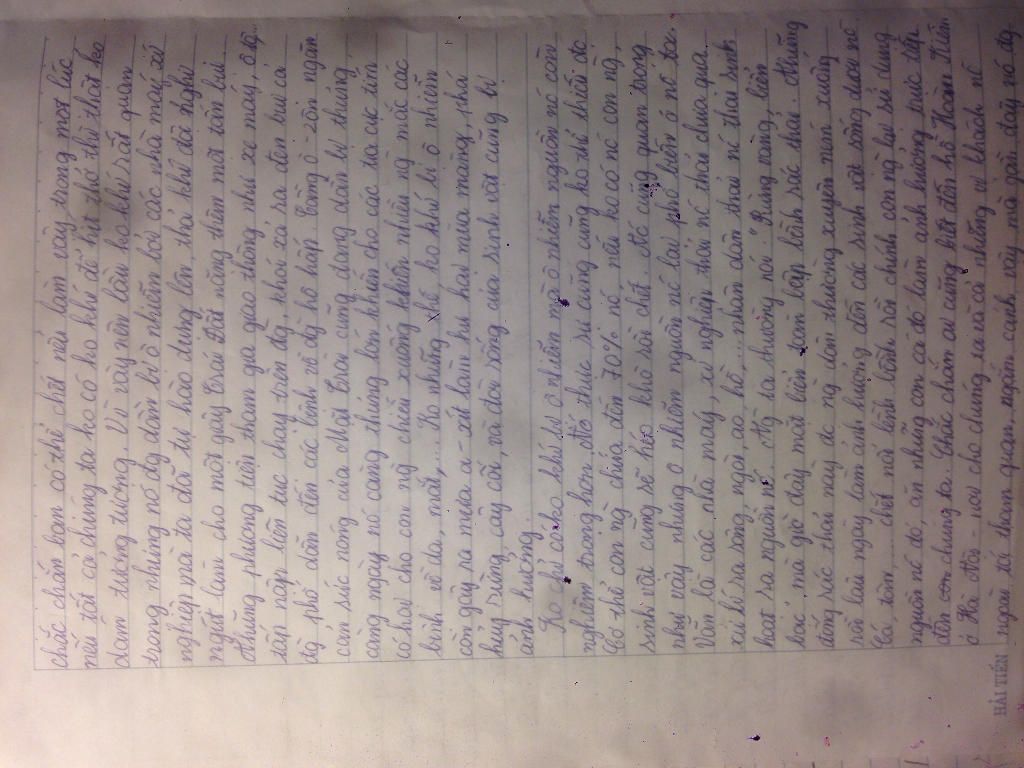 chắc chắn bạn có thể chết nếu làm vậy trong một lúc
nếu tất cả chúng ta ko có ko khí để hít thở thì thật ko
dám tưởng tượng. Vì vậy nên bầu ko khí rất quan
trọng nhưng nó đg dần bị ô nhiễm bởi các nhà máy xí
nghiệp mà ta đã tự hào dựng lên, thả khí độc nghi
ngút làm cho mặt gây Trái Đất nóng thêm một tàn lụi
Những phương tiện tham gia giao thông như xe máy, ô tô,
tấp nập liên tục chạy trên đg, khói xả ra đen bụi cả
đg phố dẫn đến các bệnh về đg hô hấp. Tầng ô-zôn ngăn
cản sức nóng của Mặt Trời cũng đang dần bị thủng
càng ngày nó càng thủng lớn khiến cho các tia cực tím
có hại cho con ng chiếu xuống khiến nhiều ng mắc các
bệnh về da, mắt,... Ko những thế ko khí bị ô nhiễm
còn gây ra mưa a-xít làm hư hại mùa màng, phá
hủy rừng, cây cối, và đời sống của sinh vật cũng bị
ảnh hưởng.
Ko chỉ có ko khí bị ô nhiễm mà ô nhiễm nguồn nc còn
nghiêm trọng hơn. Nc thực sự cũng ko thể thiếu đc
Cơ thể con ng chứa đến 70% nc, nếu ko có nc con ng,
sinh vật cũng sẽ héo khô rồi chết. Nc cũng quan trọng
như vậy nhưng ô nhiễm nguồn nc lại phổ biến ở nc ta.
Vẫn là các nhà máy, xí nghiệp thải nc thải chưa qua
xử lí ra sông ngòi, ao hồ,... nhân dân thải nc thải sinh
hoạt ra nguồn nc. Ng ta thường nói: "Rừng vàng, biển
bạc" mà giờ đây mặt biển toàn lấp lánh rác thải. Những
đống rác thải này đc ng dân thường xuyên ném xuống
rồi lâu ngày làm ảnh hưởng đến các sinh vật sống dưới nc
Cá, tôm, chết nổi lềnh bềnh rồi chính con ng lại sử dụng
nguồn nc đó, ăn những con cá đó làm ảnh hưởng trực tiếp
đến chúng ta. Chắc chắn ai cũng biết đến hồ Hoàn Kiếm
ở Hà Nội - nơi cho chúng ta và cả những vị khách nc
ngoài tới tham quan, ngắm cảnh vậy mà gần đây nó đg
HẢI TIẾN